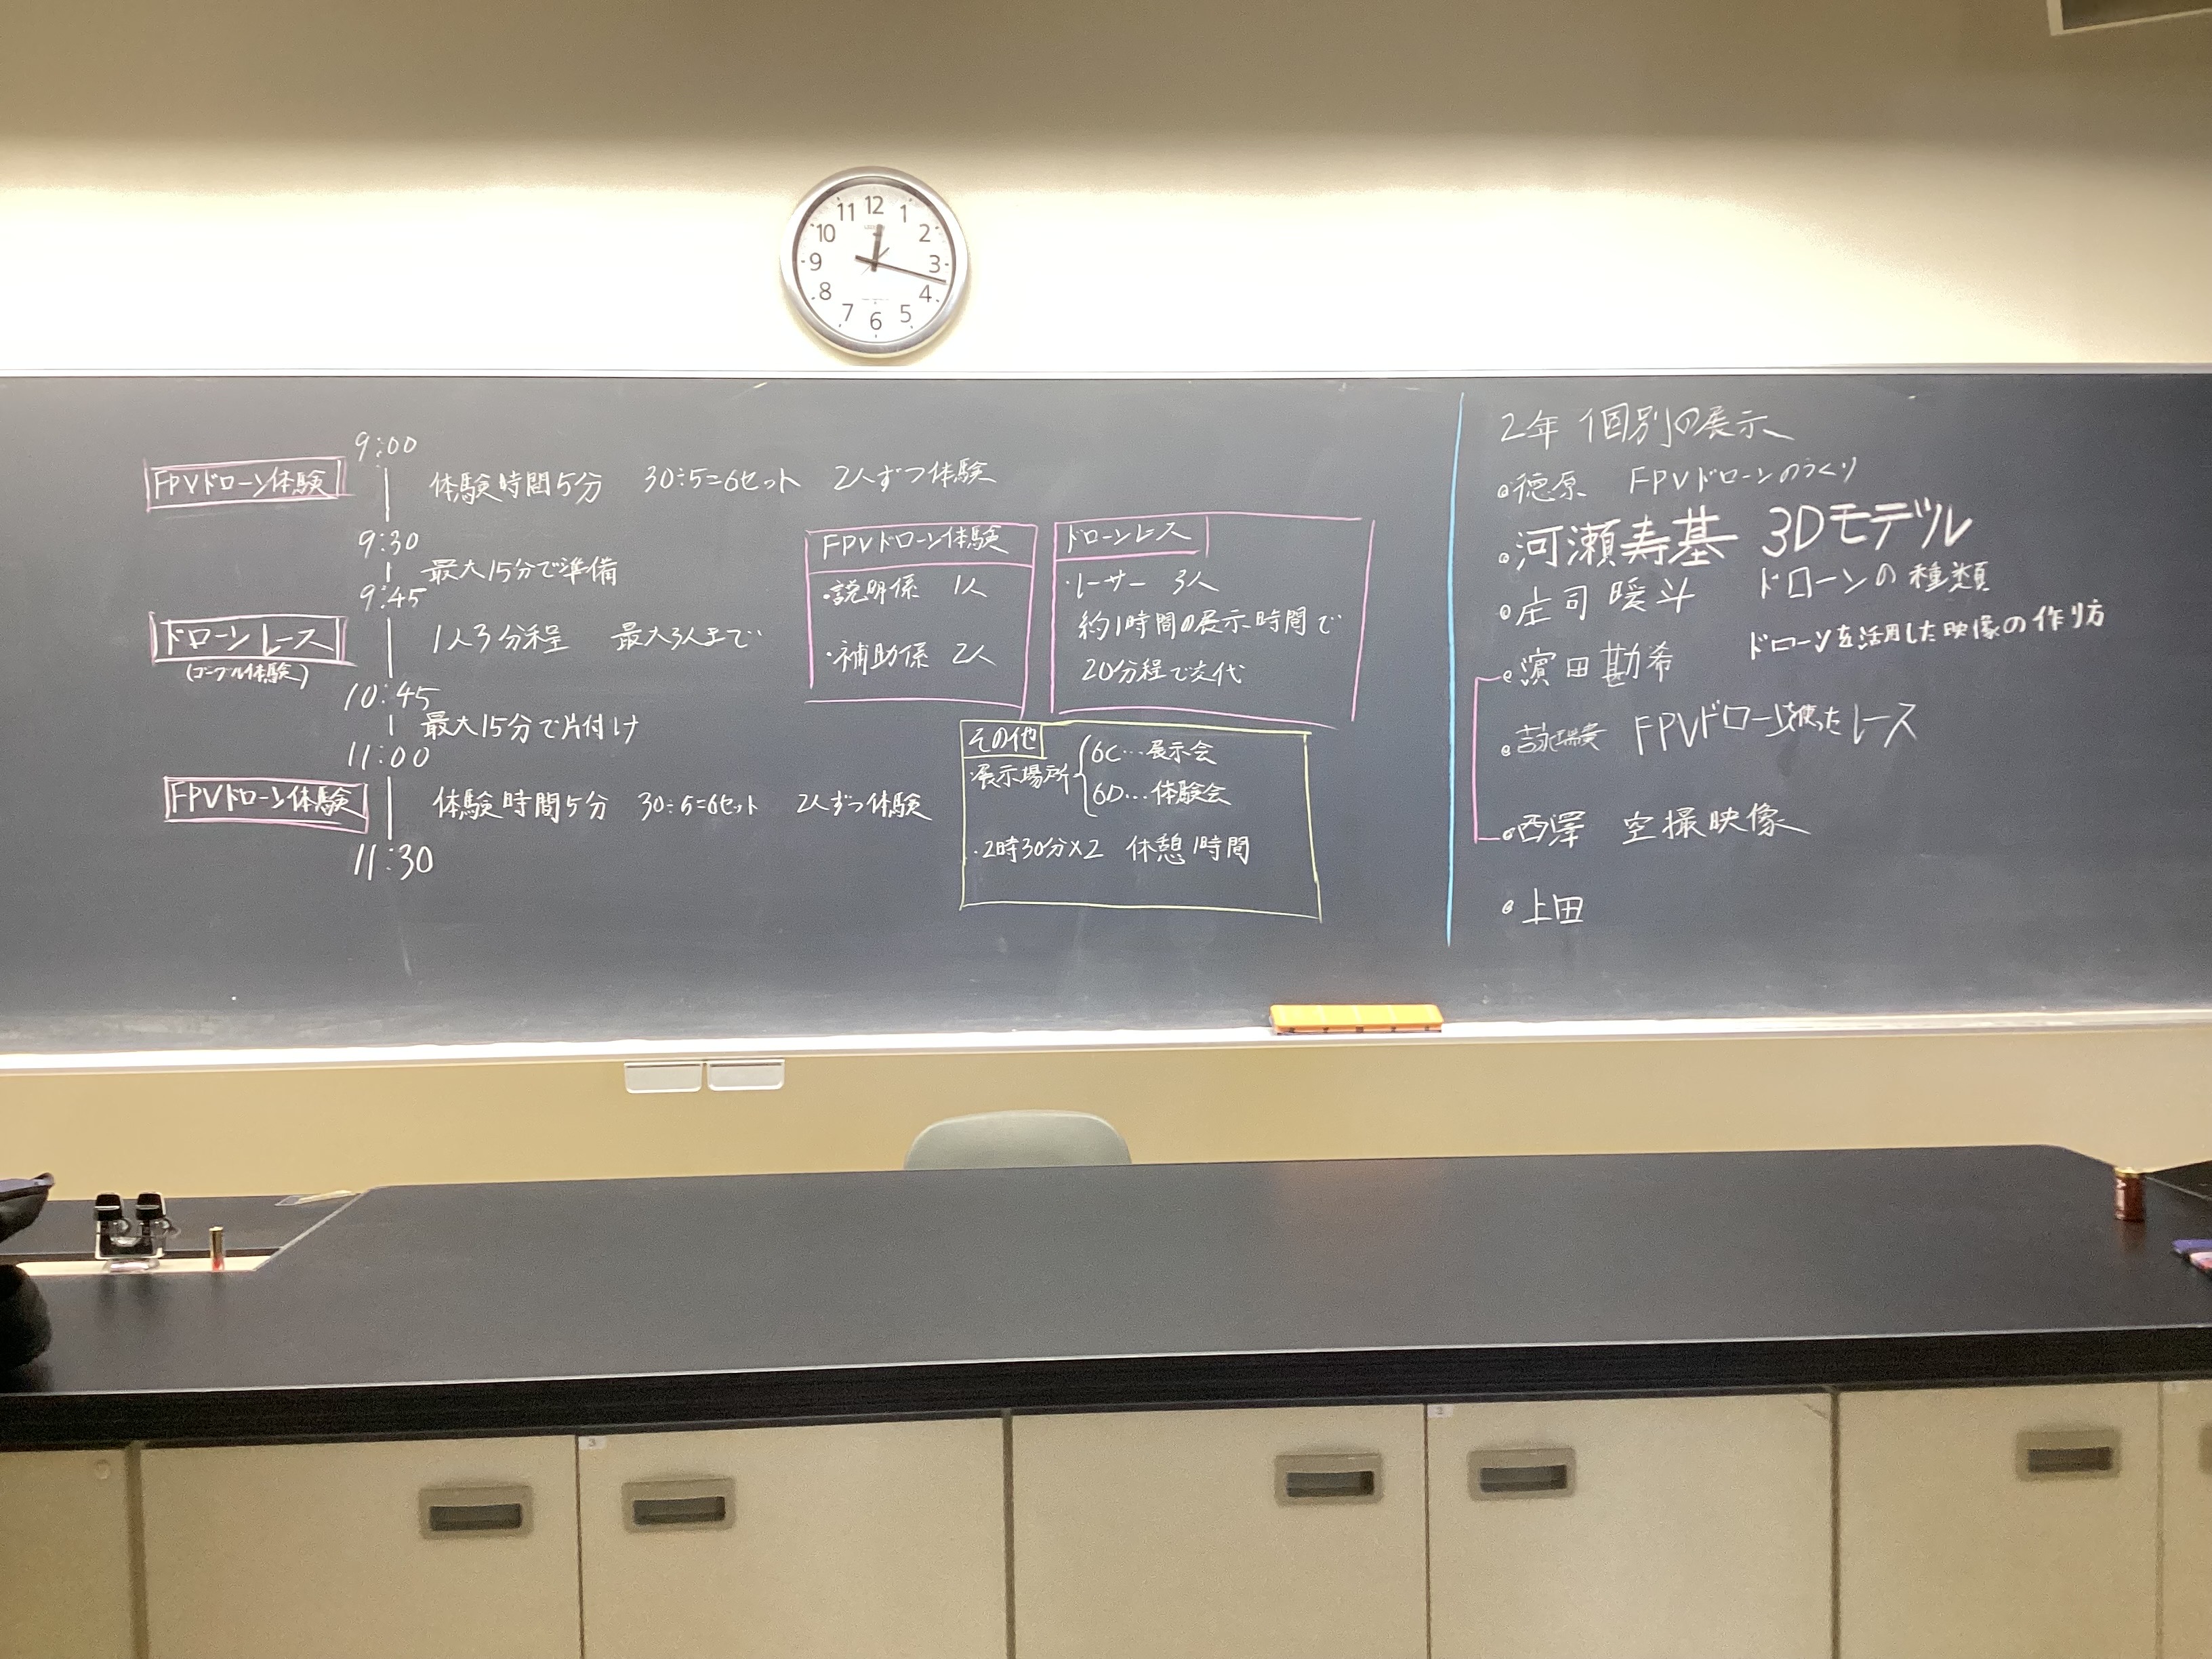 12
1
2
3
4
5
6
7
8
9
10
11
9:00
FPVドローン体験
体験時間5分 30÷5=6セット 2人ずつ体験
9:30
最大15分で準備
9:45
ドローンレース
(ゴーグル体験)
1人3分程 最大3人まで
10:45
最大15分で片付け
11:00
FPVドローン体験
体験時間5分 30÷5=6セット 2人ずつ体験
11:30
FPVドローン体験
・説明係 1人
・補助係 2人
ドローンレース
・レーサー 3人
約1時間の展示時間で
20分程で交代
その他
・展示場所
6C…展示会
6D…体験会
・2時30分×2 休憩1時間
2年 個別の展示
徳原 FPVドローンのつくり
河瀬寿基 3Dモデル
庄司暖斗 ドローンの種類
濵田勘希 ドローンを活用した映像の作り方
FPVドローンを使ったレース
西澤 空撮映像
上田
3
2